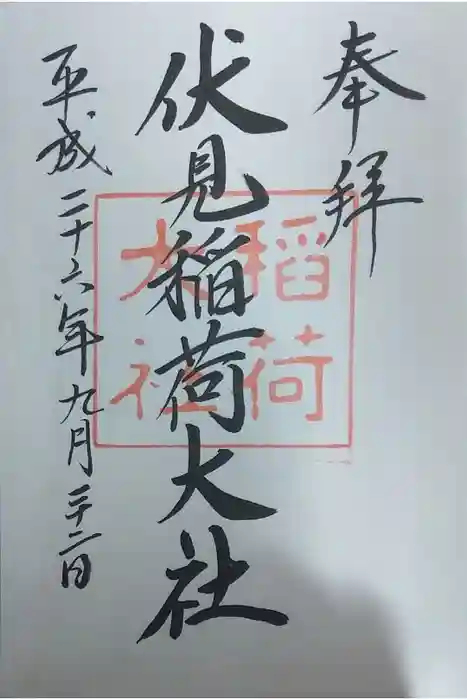 奉拝
伏見稲荷大社
稲荷
大社
平成二十六年九月二十二日